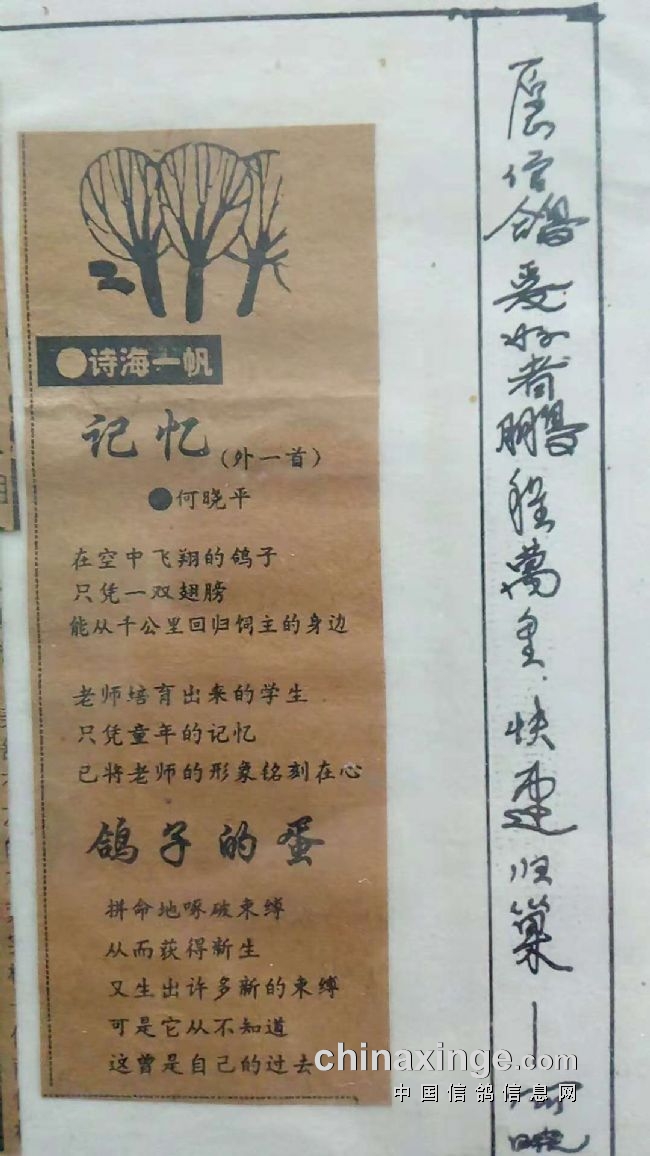 诗海一帆
记忆(外一首)
●何晓平
在空中飞翔的鸽子
只凭一双翅膀
能从千公里回归饲主的身边
老师培育出来的学生
只凭童年的记忆
已将老师的形象铭刻在心
鸽子的蛋
拼命地啄破束缚
从而获得新生
又生出许多新的束缚
可是它从不知道
这曾是自己的过去
愿信鴿爱好者鵬程萬里.快速归巢—何
chinaxinge.com
中国信鸽信息网